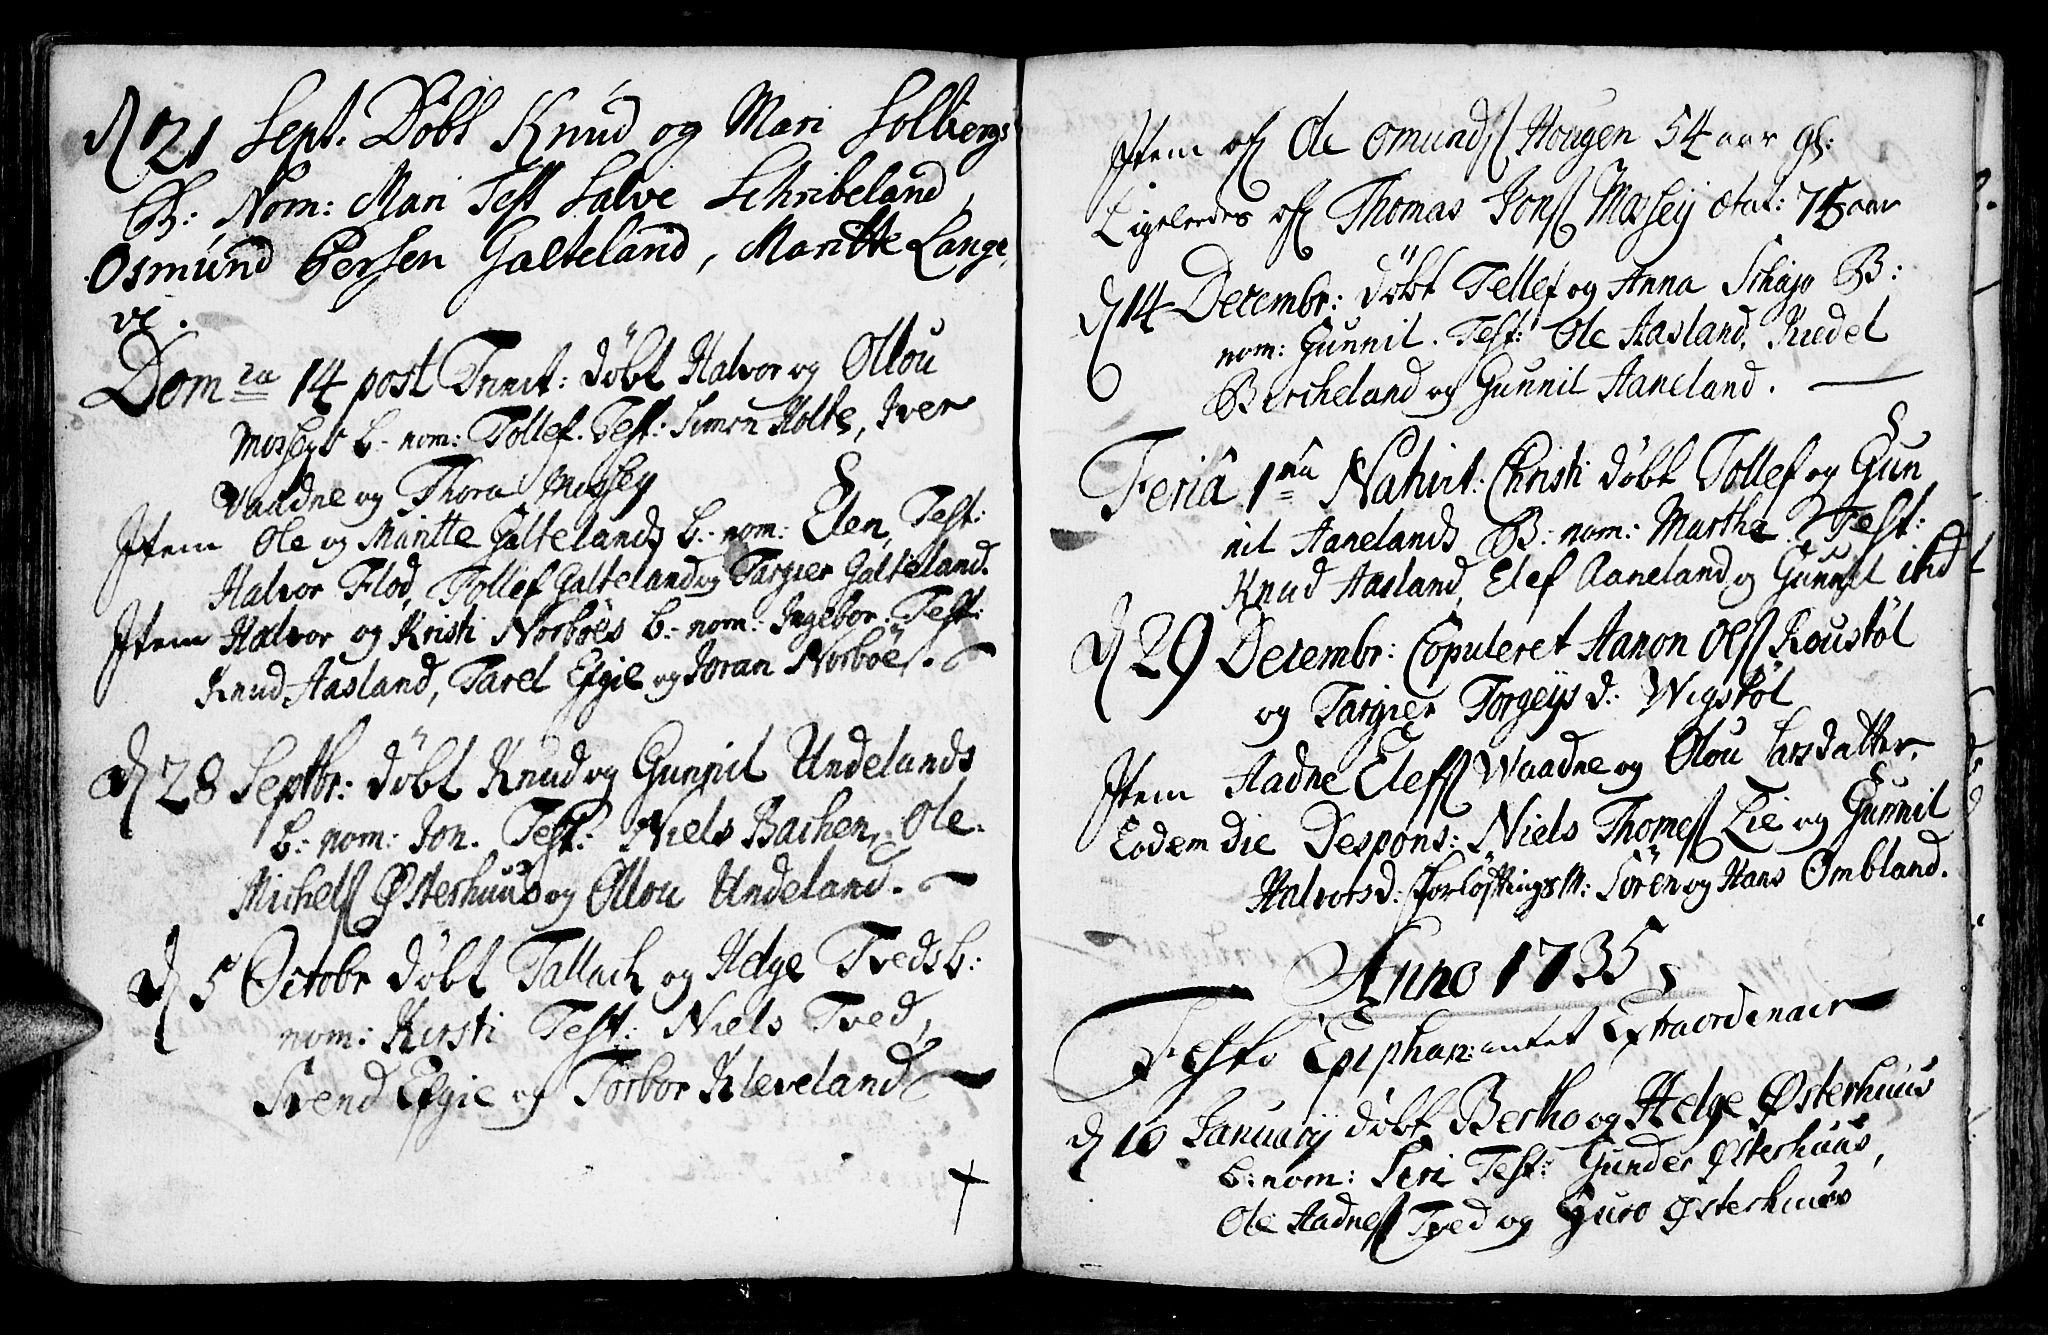 D 21 Sept. Döbt Knud og Mari Solbergs
B: Nom: Mari Test Salve Schribeland,
Osmund Persen Galteland, Maritte Lange,
vei.
Dom ca 14 post Trinit: döbt Halvor og Ollou
Mosseys b. nom: Tollef. Test: Simon Holte, Iver
Vaadne og Thora Mossey
Item Ole og Maritte Galtelands b: nom: Elen, Test:
Halvor Flod, Tollef Galteland og Targier Galteland.
Item Halvor og Kristi Norböes b: nom: Ingebor. Test:
Knud Aasland, Tarel Efgie og Joran Norböe.
D 28 Septbr: döbt Knud og Gunnil Undelands
b: nom: Jon. Test: Niels Bachen, Ole
Michels Østerhuus og Ollou Undeland.
D 5 Octobr döbt Tallach og Helge Tveds b:
nom: Kirsti Test: Niels Tved,
Svend Efgie og Torbor Kleveland
Item Ole Omunds Hougen 54 aar gl:
Ligeledes Thomas Jons Mossey ætat: 75 aar
D 14 Decembr: döbt Tellef og Anna Schajo B:
nom: Gunnil. Test: Ole Aasland, Kiedel
Bircheland og Gunnil Aaneland.
Feria 1ma Nativit: Christi döbt Tollef og Gun
nil Aanelands B: nom: Martha. Test:
Knud Aasland, Elef Aaneland og Gunnil ibid
D 29 Decembr: Copuleret Aanon Ols Rouståöl
og Targier Torgeys d: Wigstöl
Item Aadne Elefs Waadne og Olou Larsdatter.
Eodem die Despons: Niels Thomes Lie og Gunnil
Halvors d: Forlöftnings M: Sören og Hans Ombland.
Anno 1735
Festo Epiphan: intet Extraordenair
D 10 January döbt Bertho og Helge Østerhuus
b: nom: Siri Test: Gunder Østerhuus,
Ole Aadnes Tved og Guro Østerhuus